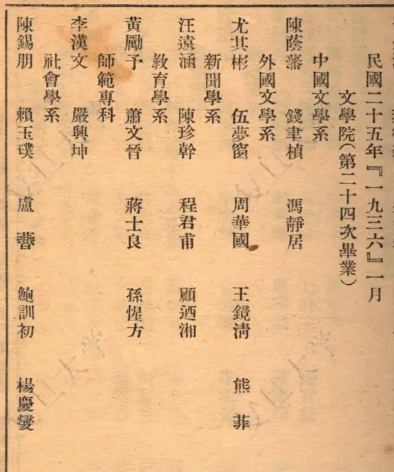 民國二十五年『一九三六』一月
文學院(第二十四次畢業)
中國文學系
陳蔭藩 錢聿楨 馮靜居
外國文學系
尤其彬 伍夢窗 周華國 王鏡清 熊菲
新聞學系
汪遠涵 陳珍幹 程君甫 顧迺湘
教育學系
黃勵予 蕭文晉 蔣士良 孫惺方
師範專科
李漢文 嚴興坤
社會學系
陳錫朋 賴玉璞 盧 鮑訓初 楊慶燮